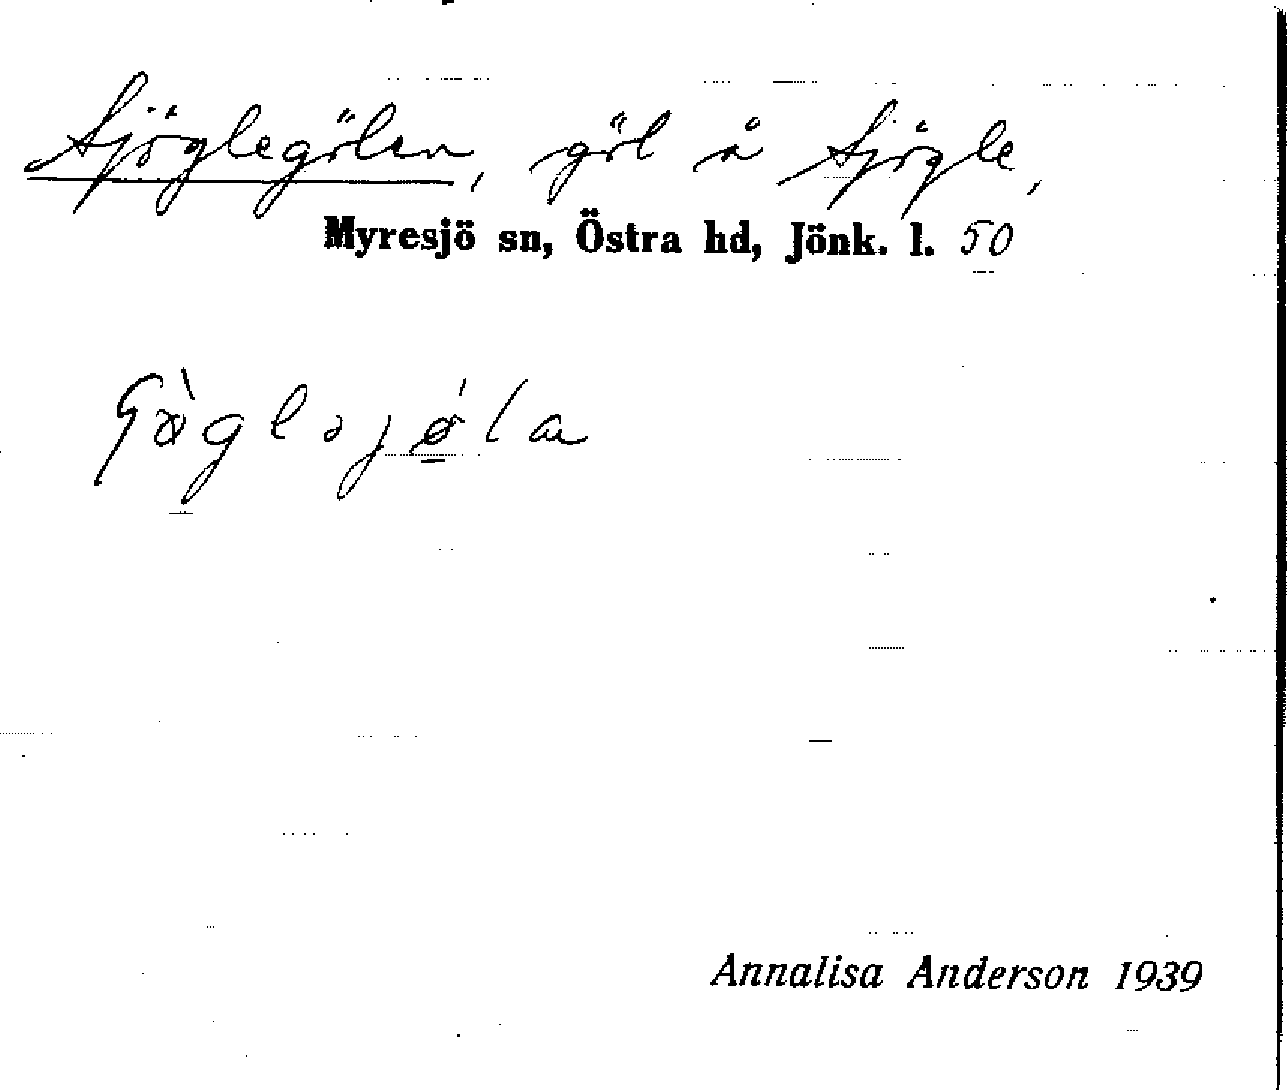 Sjöglegölen, göl å Sjögle,
Myresjö sn, Östra hd, Jönk. l. 50
Annalisa Anderson 1939